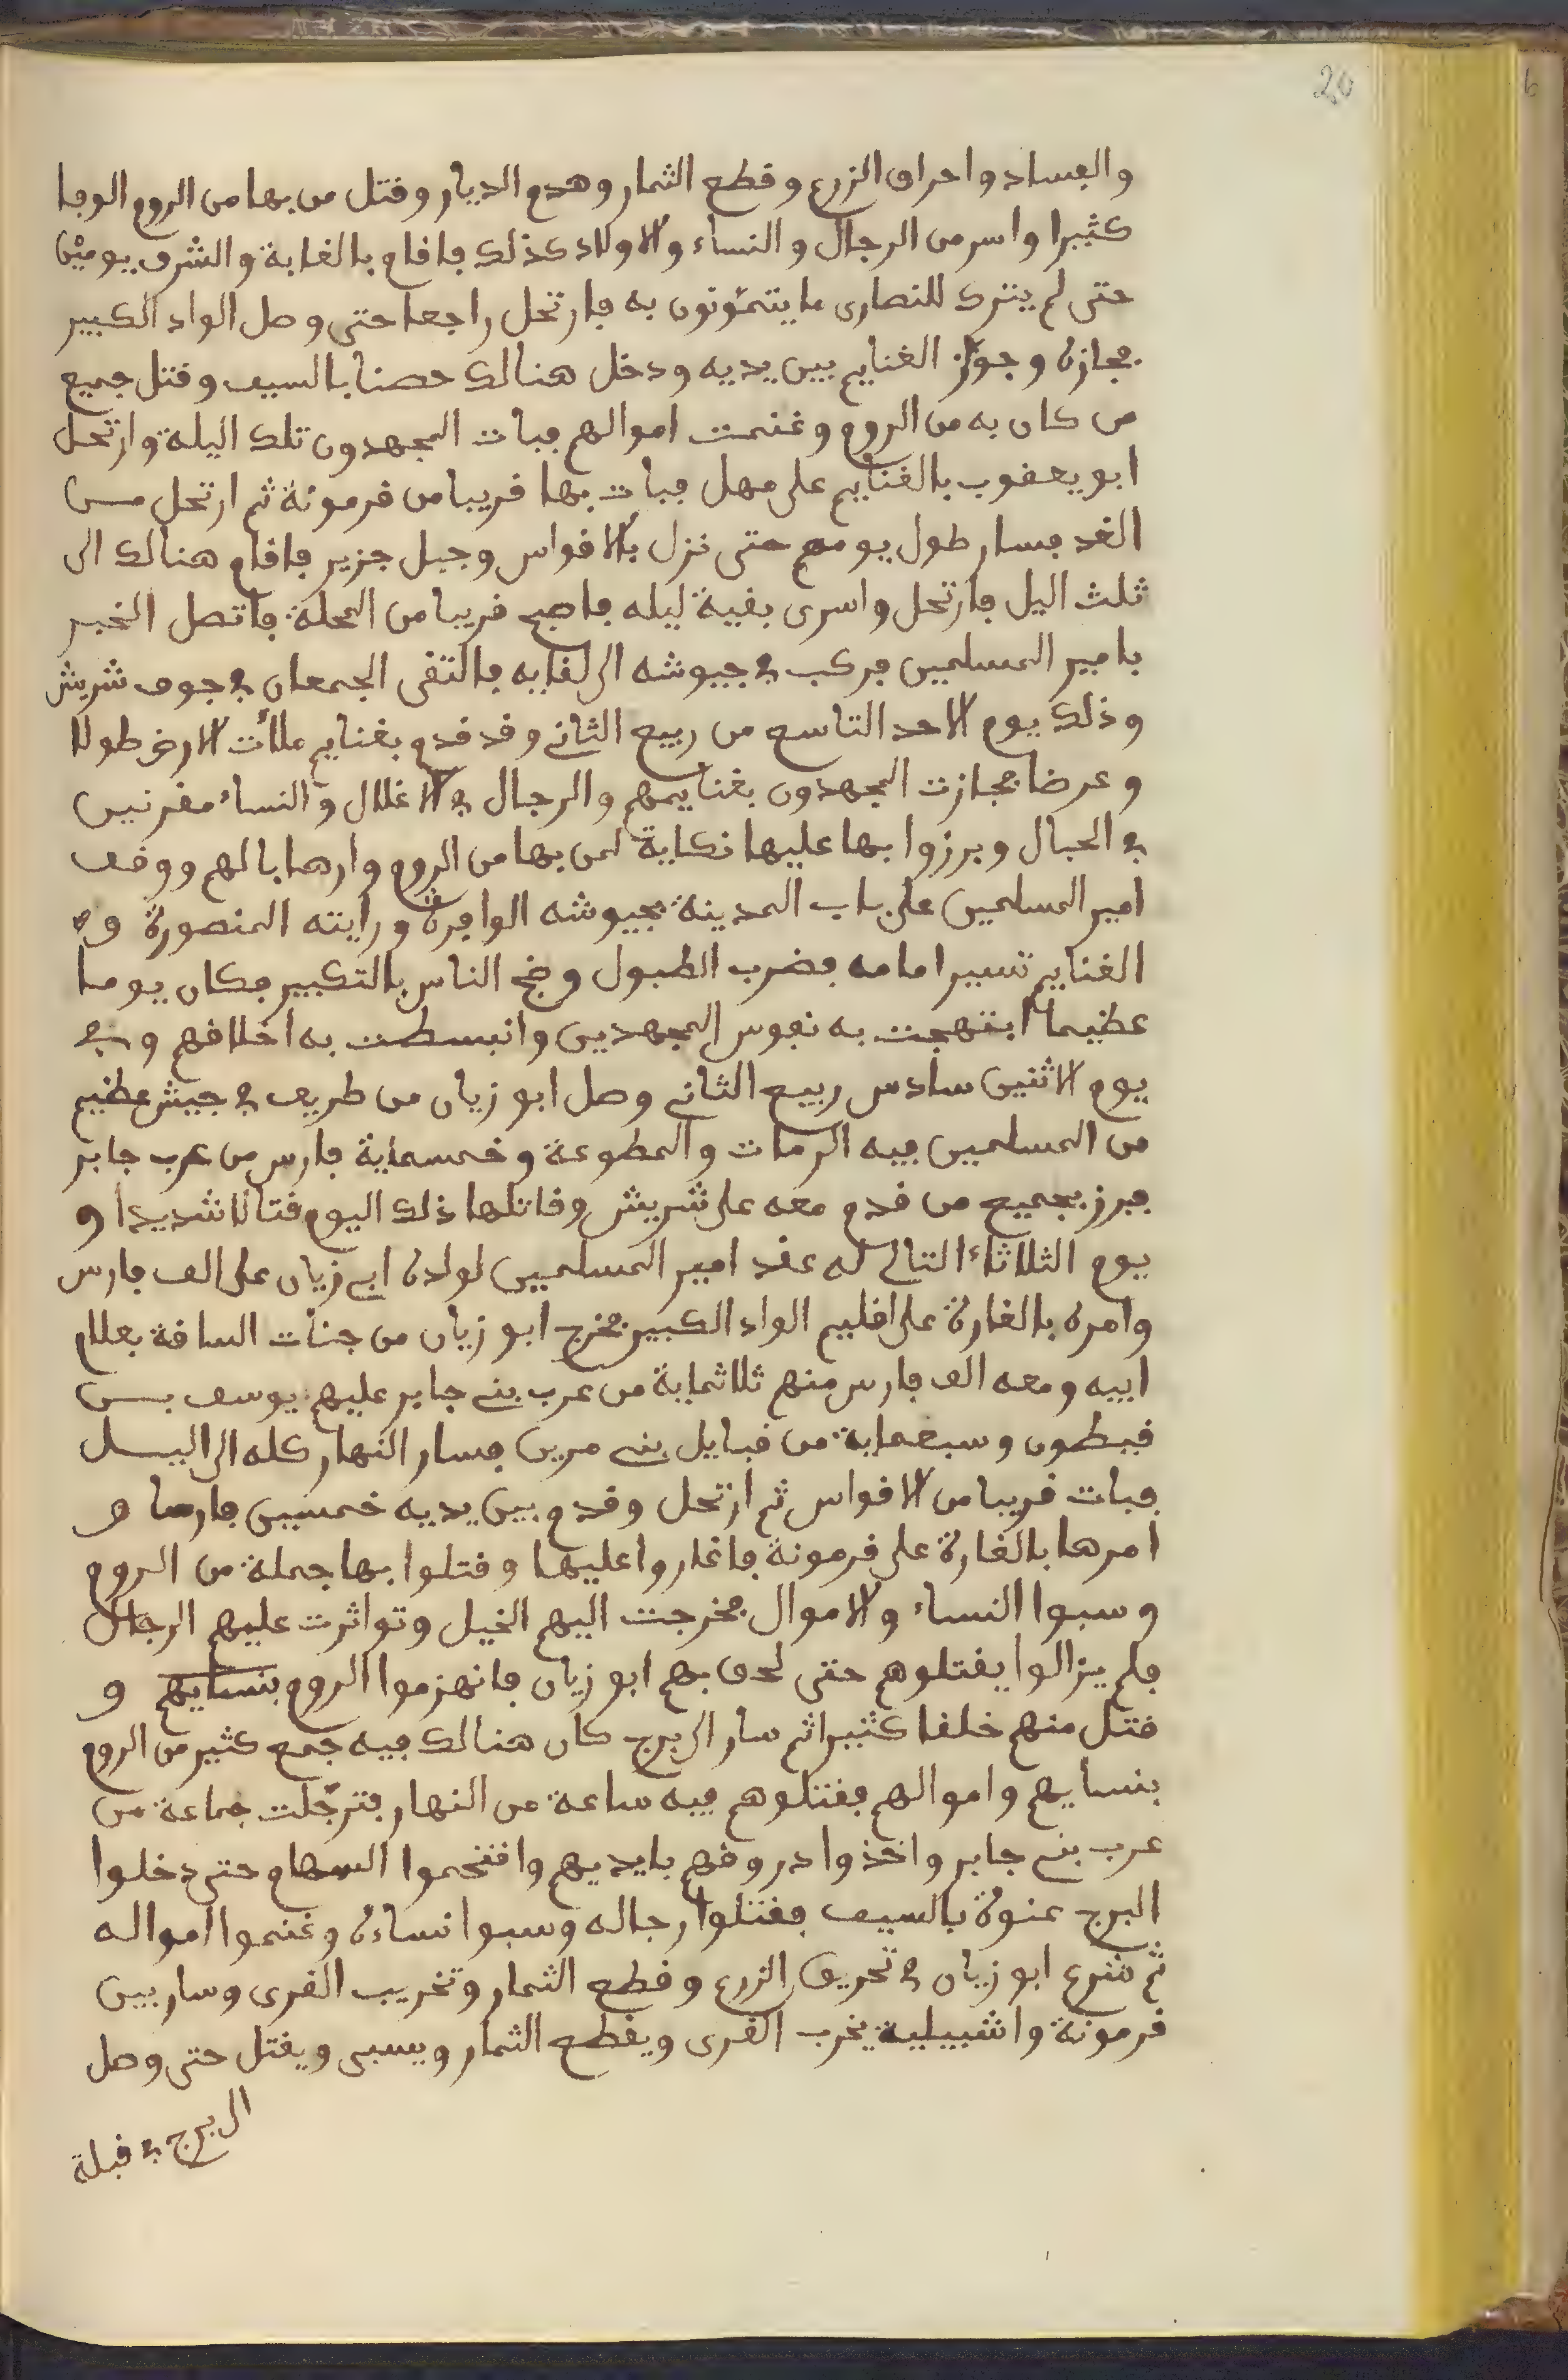 20
والفساد واحراق الزرع وقطع الثمار وهدم الديار وقتل من بها من الروم الوفا
كثيرا واسر من الرجال والنساء والاولاد كذلك فاقام بالغابة والشرف يومين
حتى لم يترك للنصارى ما يتمؤنون به فارتحل راجعا حتى وصل الواد الكبير
فجازه وجوّز الغنايم بين يديه ودخل هنالك حصنا بالسيف وقتل جميع
من كان به من الروم وغنمت اموالهم فبات المجهدون تلك اليلة وارتحل
ابو يعقوب بالغنايم على مهل فبات بها قريبا من قرمونة ثم ارتحل مــن
الغد فسار طول يومه حتى نزل بالاقواس وجبل جزير فاقام هنالك الى
ثلث اليل فارتحل واسرى بقية ليله فاصبح قريبا من المحلة فاتصل الخبر
بامير المسلمين فركب في جيوشه الى لقايه فالتقى الجمعان في جوف شريش
وذلك يوم الاحد التاسع من ربيع الثاني وقد قدم بغنايم ملأت الارض طولا
وعرضا فجازت المجهدون بغنايمهم والرجال في الاغلال والنساء مقرنين
في الحبال وبرزوا بها عليها نكاية لمن بها من الروم وارهابا لهم ووقف
امير المسلمين على باب المدينة بجيوشه الوافرة ورايته المنصورة و
الغنايم تسير امامه فضرب الطبول وضج الناس بالتكبير فكان يوما
عظيما ابتهجت به نفوس المجهدين وانبسطت به اخلاقهم وفي
يوم الاثنين سادس ربيع الثاني وصل ابو زيان من طريف في جيش عظيم
من المسلمين فيه الرمات والمطوعة وخمسماية فارس من عرب جابر
فبرز بجميع من قدم معه على شريش وقاتلها ذلك اليوم قتالا شديدا و
يوم الثلاثاء التالي له عقد امير المسلمين لولده ابي زيان على الف فارس
وامره بالغارة على اقليم الواد الكبير فخرج ابو زيان من جنات السافة بعلام
ابيه ومعه الف فارس منهم ثلاثماية من عرب بني جابر عليهم يوسف بــن
قيطون وسبعماية من قبايل بني مرين فسار النهار كله الى اليـــل
فبات قريبا من الاقواس ثم ارتحل وقدم بين يديه خمسين فارسا و
امرها بالغارة على قرمونة فاغاروا عليها وقتلوا بها جملة من الروم
وسبوا النساء والاموال فخرجت اليهم الخيل وتواثرت عليهم الرجال
فلم يزالوا يقتلوهم حتى لحق بهم ابو زيان فانهزموا الروم بنسايهم و
قتل منهم خلقا كثيرا ثم سار الى برج كان هنالك فيه جمع كثير من الروم
بنسايهم واموالهم فقتلوهم فيه ساعة من النهار فترجّلت جماعة من
عرب بني جابر واخذوا دروقهم بايديهم واقتحموا السهام حتى دخلوا
البرج عنوة بالسيف فقتلوا رجاله وسبوا نساءه وغنموا امواله
ثم شرع ابو زيان في تحريق الزرع وقطع الثمار وتخريب القرى وسار بين
قرمونة واشبيلية يخرب القرى ويقطع الثمار ويسبى ويقتل حتى وصل
الى برج في قبلة